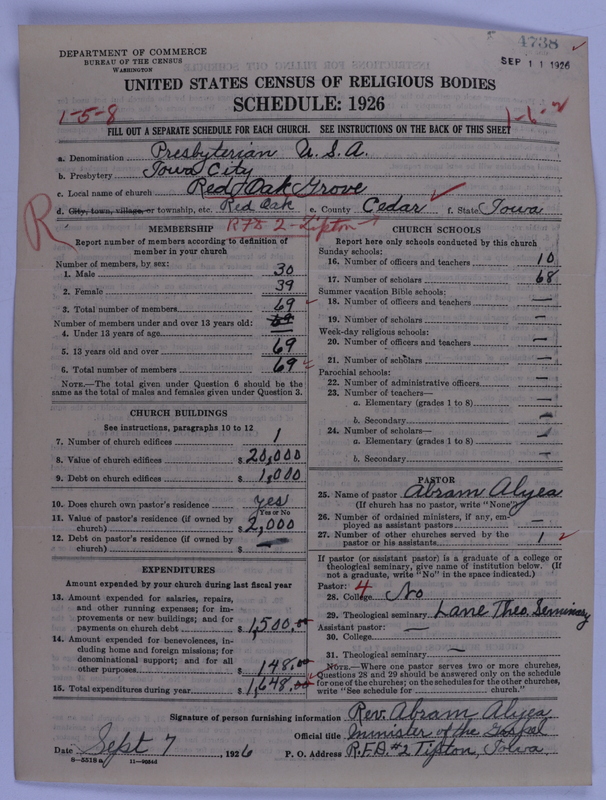 4738
SEP 11 1926
DEPARTMENT OF COMMERCE
BUREAU OF THE CENSUS
WASHINGTON
UNITED STATES CENSUS OF RELIGIOUS BODIES
SCHEDULE: 1926
1-5-8
1-6-2
FILL OUT A SEPARATE SCHEDULE FOR EACH CHURCH. SEE INSTRUCTIONS ON THE BACK OF THIS SHEET
a. Denomination Presbyterian U.S.A.
b. Presbytery Iowa City
c. Local name of church Red Oak Grove
d. City, town, village, or township, etc. Red Oak e. County Cedar f. State Iowa
R
RFD 2 - Tipton
MEMBERSHIP
Report number of members according to definition of
member in your church
Number of members, by sex:
1. Male 30
2. Female 39
3. Total number of members 69
Number of members under and over 13 years old: 69
4. Under 13 years of age —
5. 13 years old and over 69
6. Total number of members 69
NOTE.—The total given under Question 6 should be the
same as the total of males and females given under Question 3.
CHURCH BUILDINGS
See instructions, paragraphs 10 to 12
7. Number of church edifices 1
8. Value of church edifices $20,000
9. Debt on church edifices $1,000
10. Does church own pastor's residence yes
Yes or No
11. Value of pastor's residence (if owned by
church) $2,000
12. Debt on pastor's residence (if owned by
church) $ —
EXPENDITURES
Amount expended by your church during last fiscal year
13. Amount expended for salaries, repairs,
and other running expenses; for im-
provements or new buildings; and for
payments on church debt $1,500.00
14. Amount expended for benevolences, in-
cluding home and foreign missions; for
denominational support; and for all
other purposes $148.00
15. Total expenditures during year $1,648.00
CHURCH SCHOOLS
Report here only schools conducted by this church
Sunday schools:
16. Number of officers and teachers 10
17. Number of scholars 68
Summer vacation Bible schools:
18. Number of officers and teachers —
19. Number of scholars —
Week-day religious schools:
20. Number of officers and teachers —
21. Number of scholars —
Parochial schools:
22. Number of administrative officers —
23. Number of teachers—
a. Elementary (grades 1 to 8) —
b. Secondary —
24. Number of scholars—
a. Elementary (grades 1 to 8) —
b. Secondary —
PASTOR
25. Name of pastor Abram Alyea
(If church has no pastor, write "None")
26. Number of ordained ministers, if any, em-
ployed as assistant pastors —
27. Number of other churches served by the
pastor or his assistants 1
If pastor (or assistant pastor) is a graduate of a college or
theological seminary, give name of institution below. (If
not a graduate, write "No" in the space indicated.)
Pastor: 4
28. College No
29. Theological seminary Lane Theo. Seminary
Assistant pastor: —
30. College
31. Theological seminary —
NOTE.—Where one pastor serves two or more churches,
Questions 28 and 29 should be answered only on the schedule
for one of the churches; on the schedules for the other churches,
write "See schedule for church."
Signature of person furnishing information Rev. Abram Alyea
Official title Minister of the Gospel
Date Sept 7, 1926 P. O. Address R.F.D. #2 Tipton, Iowa.
8-5518a